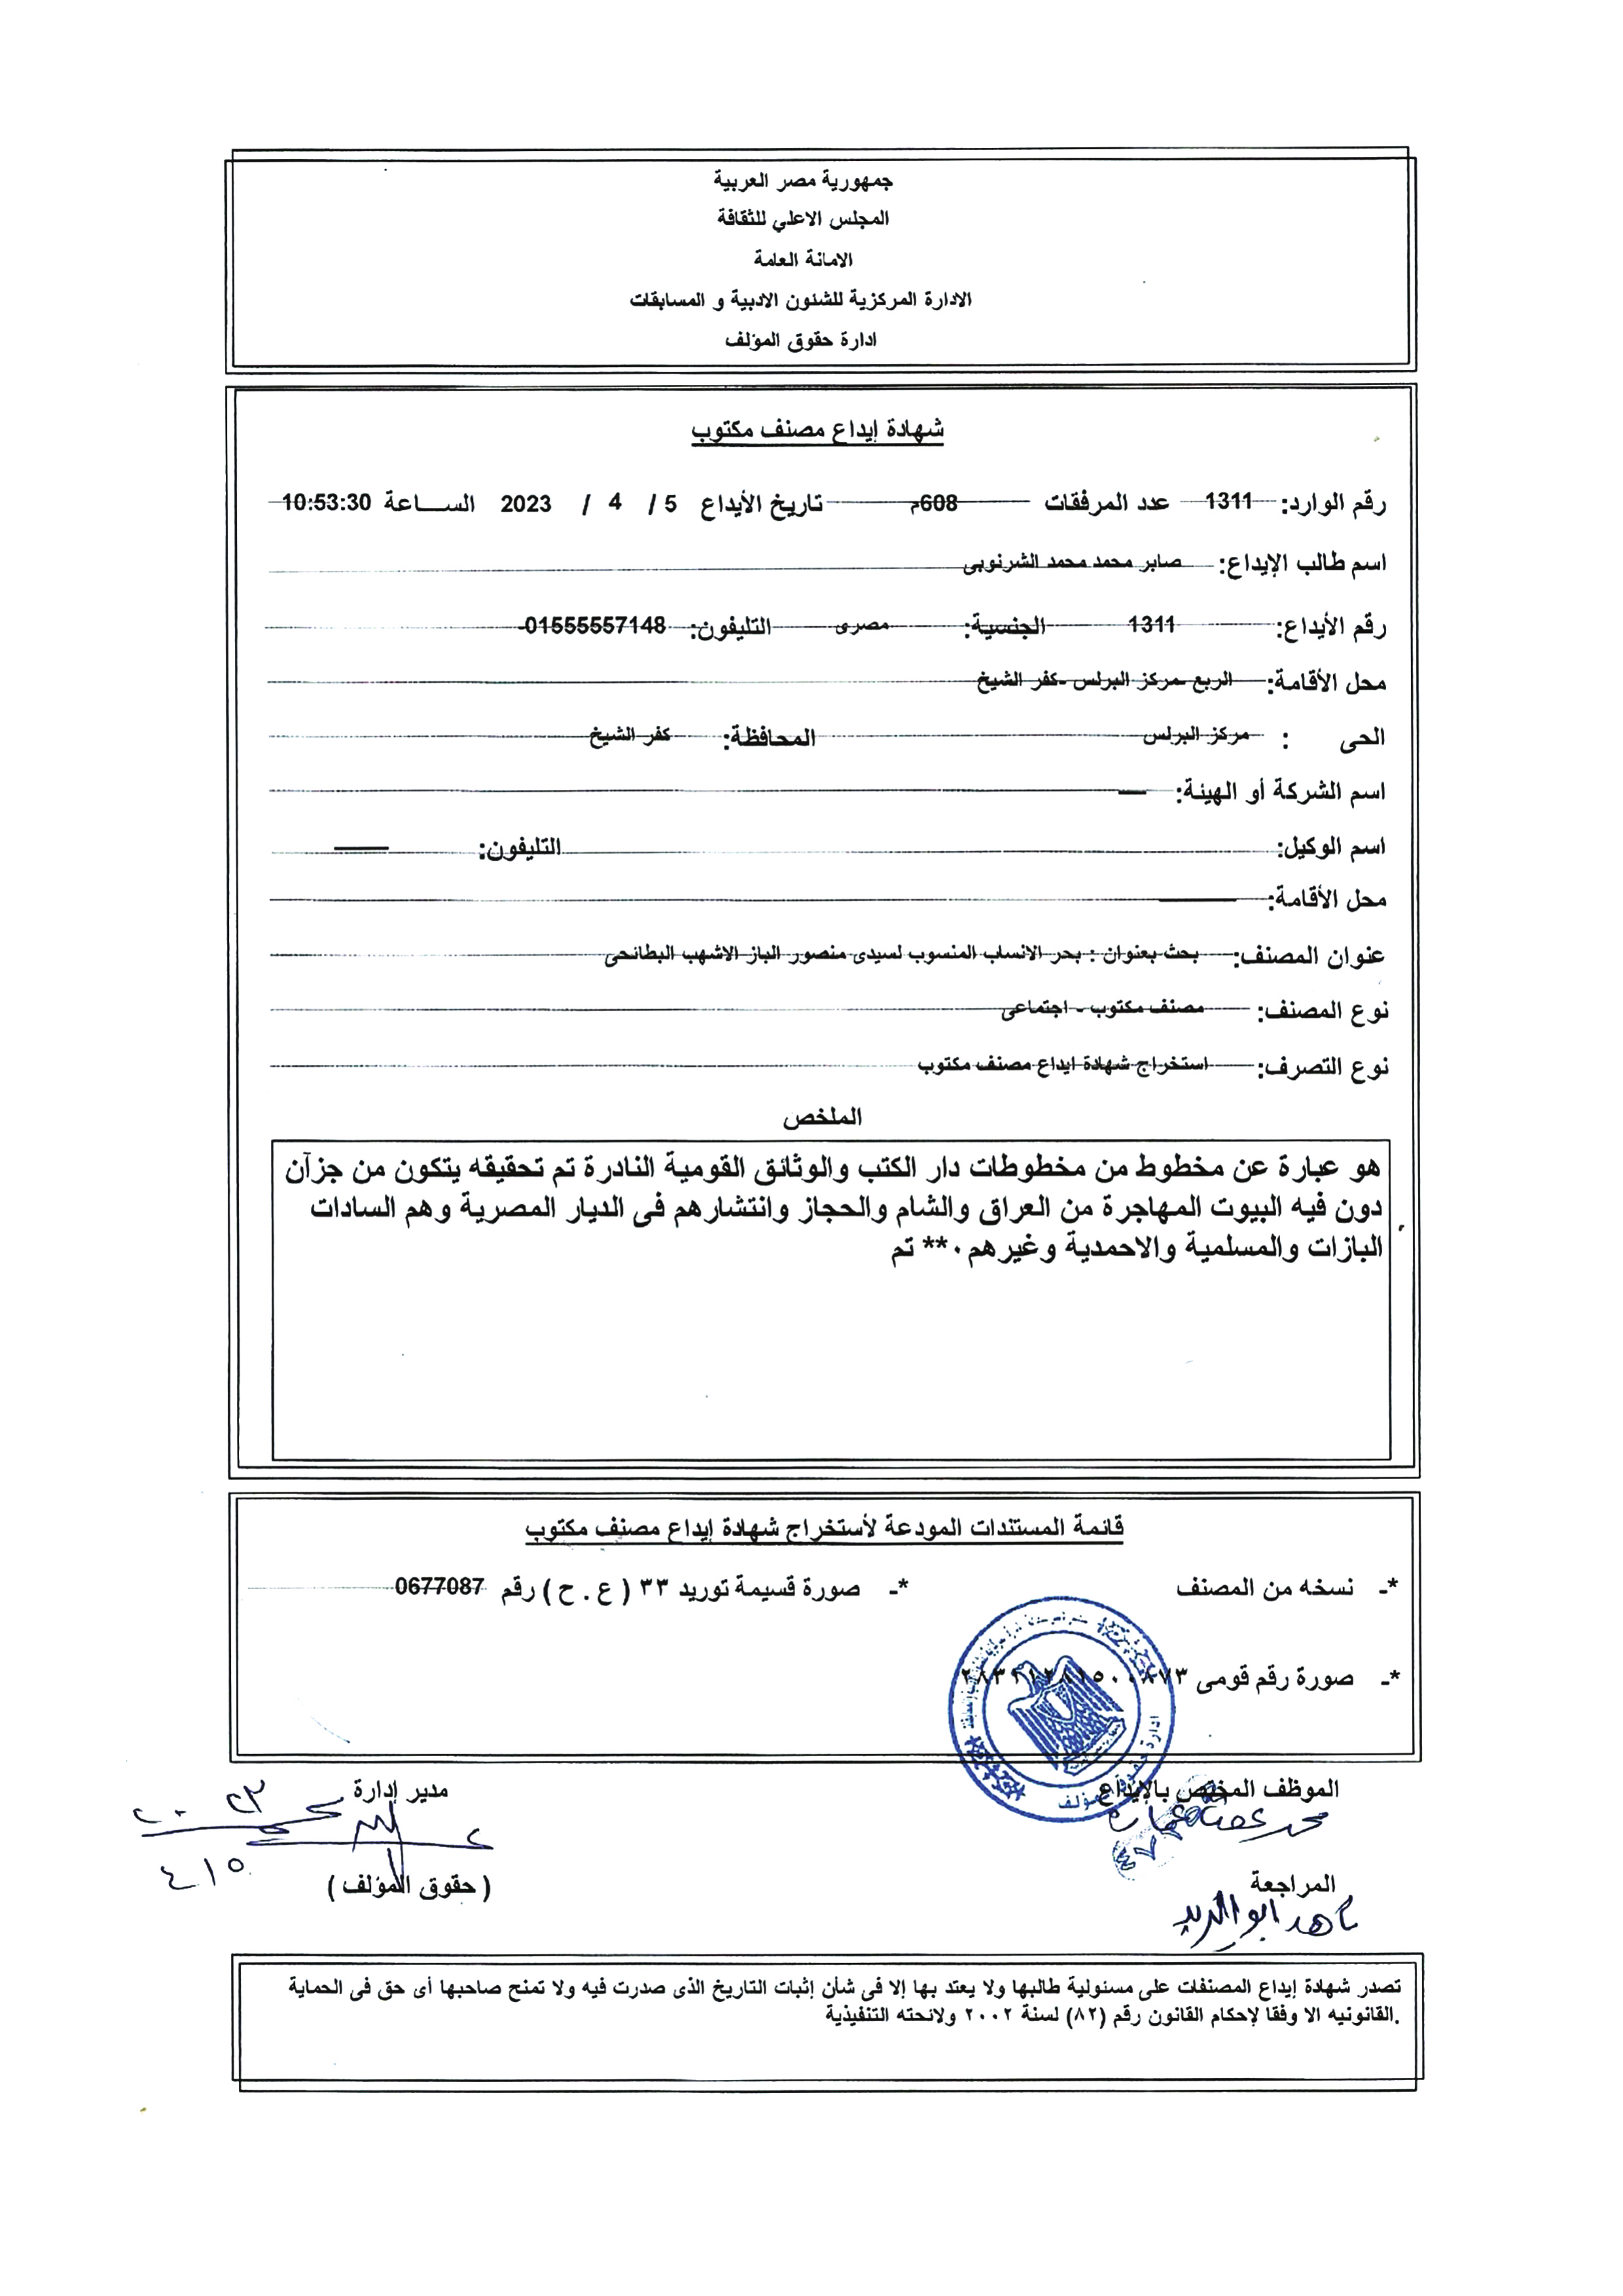 جمهورية مصر العربية
المجلس الاعلي للثقافة
الامانة العامة
الادارة المركزية للشئون الادبية و المسابقات
ادارة حقوق المؤلف
شهادة إيداع مصنف مكتوب
رقم الوارد: 1311 عدد المرفقات 608م تاريخ الأيداع 5 / 4 / 2023 الساعة 10:53:30
اسم طالب الإيداع: صابر محمد محمد الشرنوبى
رقم الأيداع: 1311 الجنسية: مصرى التليفون: 01555557148-
محل الأقامة: الربع -مركز البرلس -كفر الشيخ
الحى : مركز البرلس المحافظة: كفر الشيخ
اسم الشركة أو الهيئة:
اسم الوكيل: التليفون:
محل الأقامة:
عنوان المصنف: بحث بعنوان : بحر الانساب المنسوب لسيدى منصور الباز الاشهب البطائحى
نوع المصنف: مصنف مكتوب - اجتماعى
نوع التصرف: استخراج شهادة ايداع مصنف مكتوب
الملخص
هو عبارة عن مخطوط من مخطوطات دار الكتب والوثائق القومية النادرة تم تحقيقه يتكون من جزآن
دون فيه البيوت المهاجرة من العراق والشام والحجاز وانتشارهم فى الديار المصرية وهم السادات
البازات والمسلمية والاحمدية وغيرهم٠** تم
قائمة المستندات المودعة لأستخراج شهادة إيداع مصنف مكتوب
*- نسخه من المصنف *- صورة قسيمة توريد ٣٣ ( ع . ح ) رقم 0677087
*- صورة رقم قومى
ادارة حقوق المؤلف
الموظف المختص بالإيداع مدير إدارة
المراجعة ( حقوق المؤلف )
٤/٥
تصدر شهادة إيداع المصنفات على مسئولية طالبها ولا يعتد بها إلا فى شأن إثبات التاريخ الذى صدرت فيه ولا تمنح صاحبها أى حق فى الحماية
.القانونيه الا وفقا لإحكام القانون رقم (٨٢) لسنة ٢٠٠٢ ولائحته التنفيذية